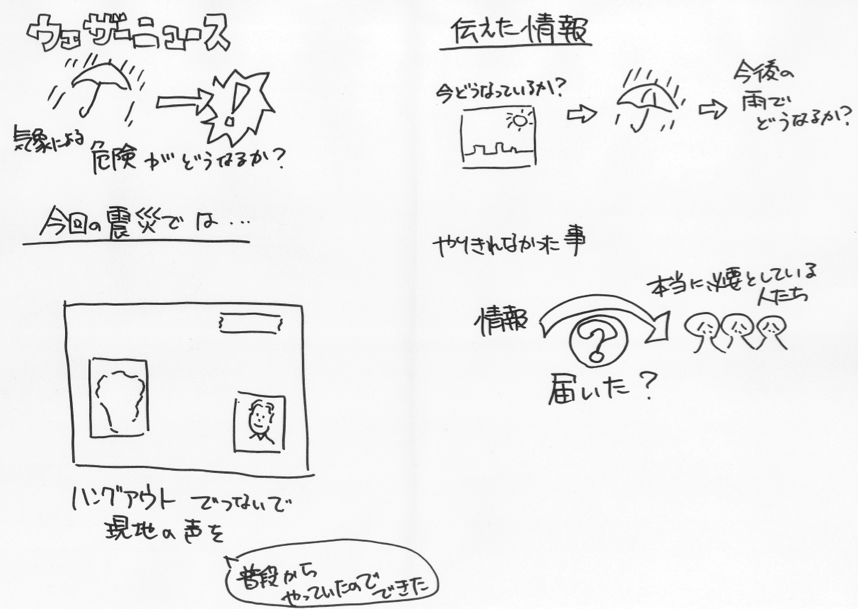 ウェザーニュース
気象による
危険がどうなるか?
今回の震災では…
ハングアウトでつないで
現地の声を
普段から
やっていたので
できた
伝えた情報
今どうなっているか?
今後の
雨で
どうなるか?
やりきれなかった事
情報
?
本当に必要としている
人たち
届いた?